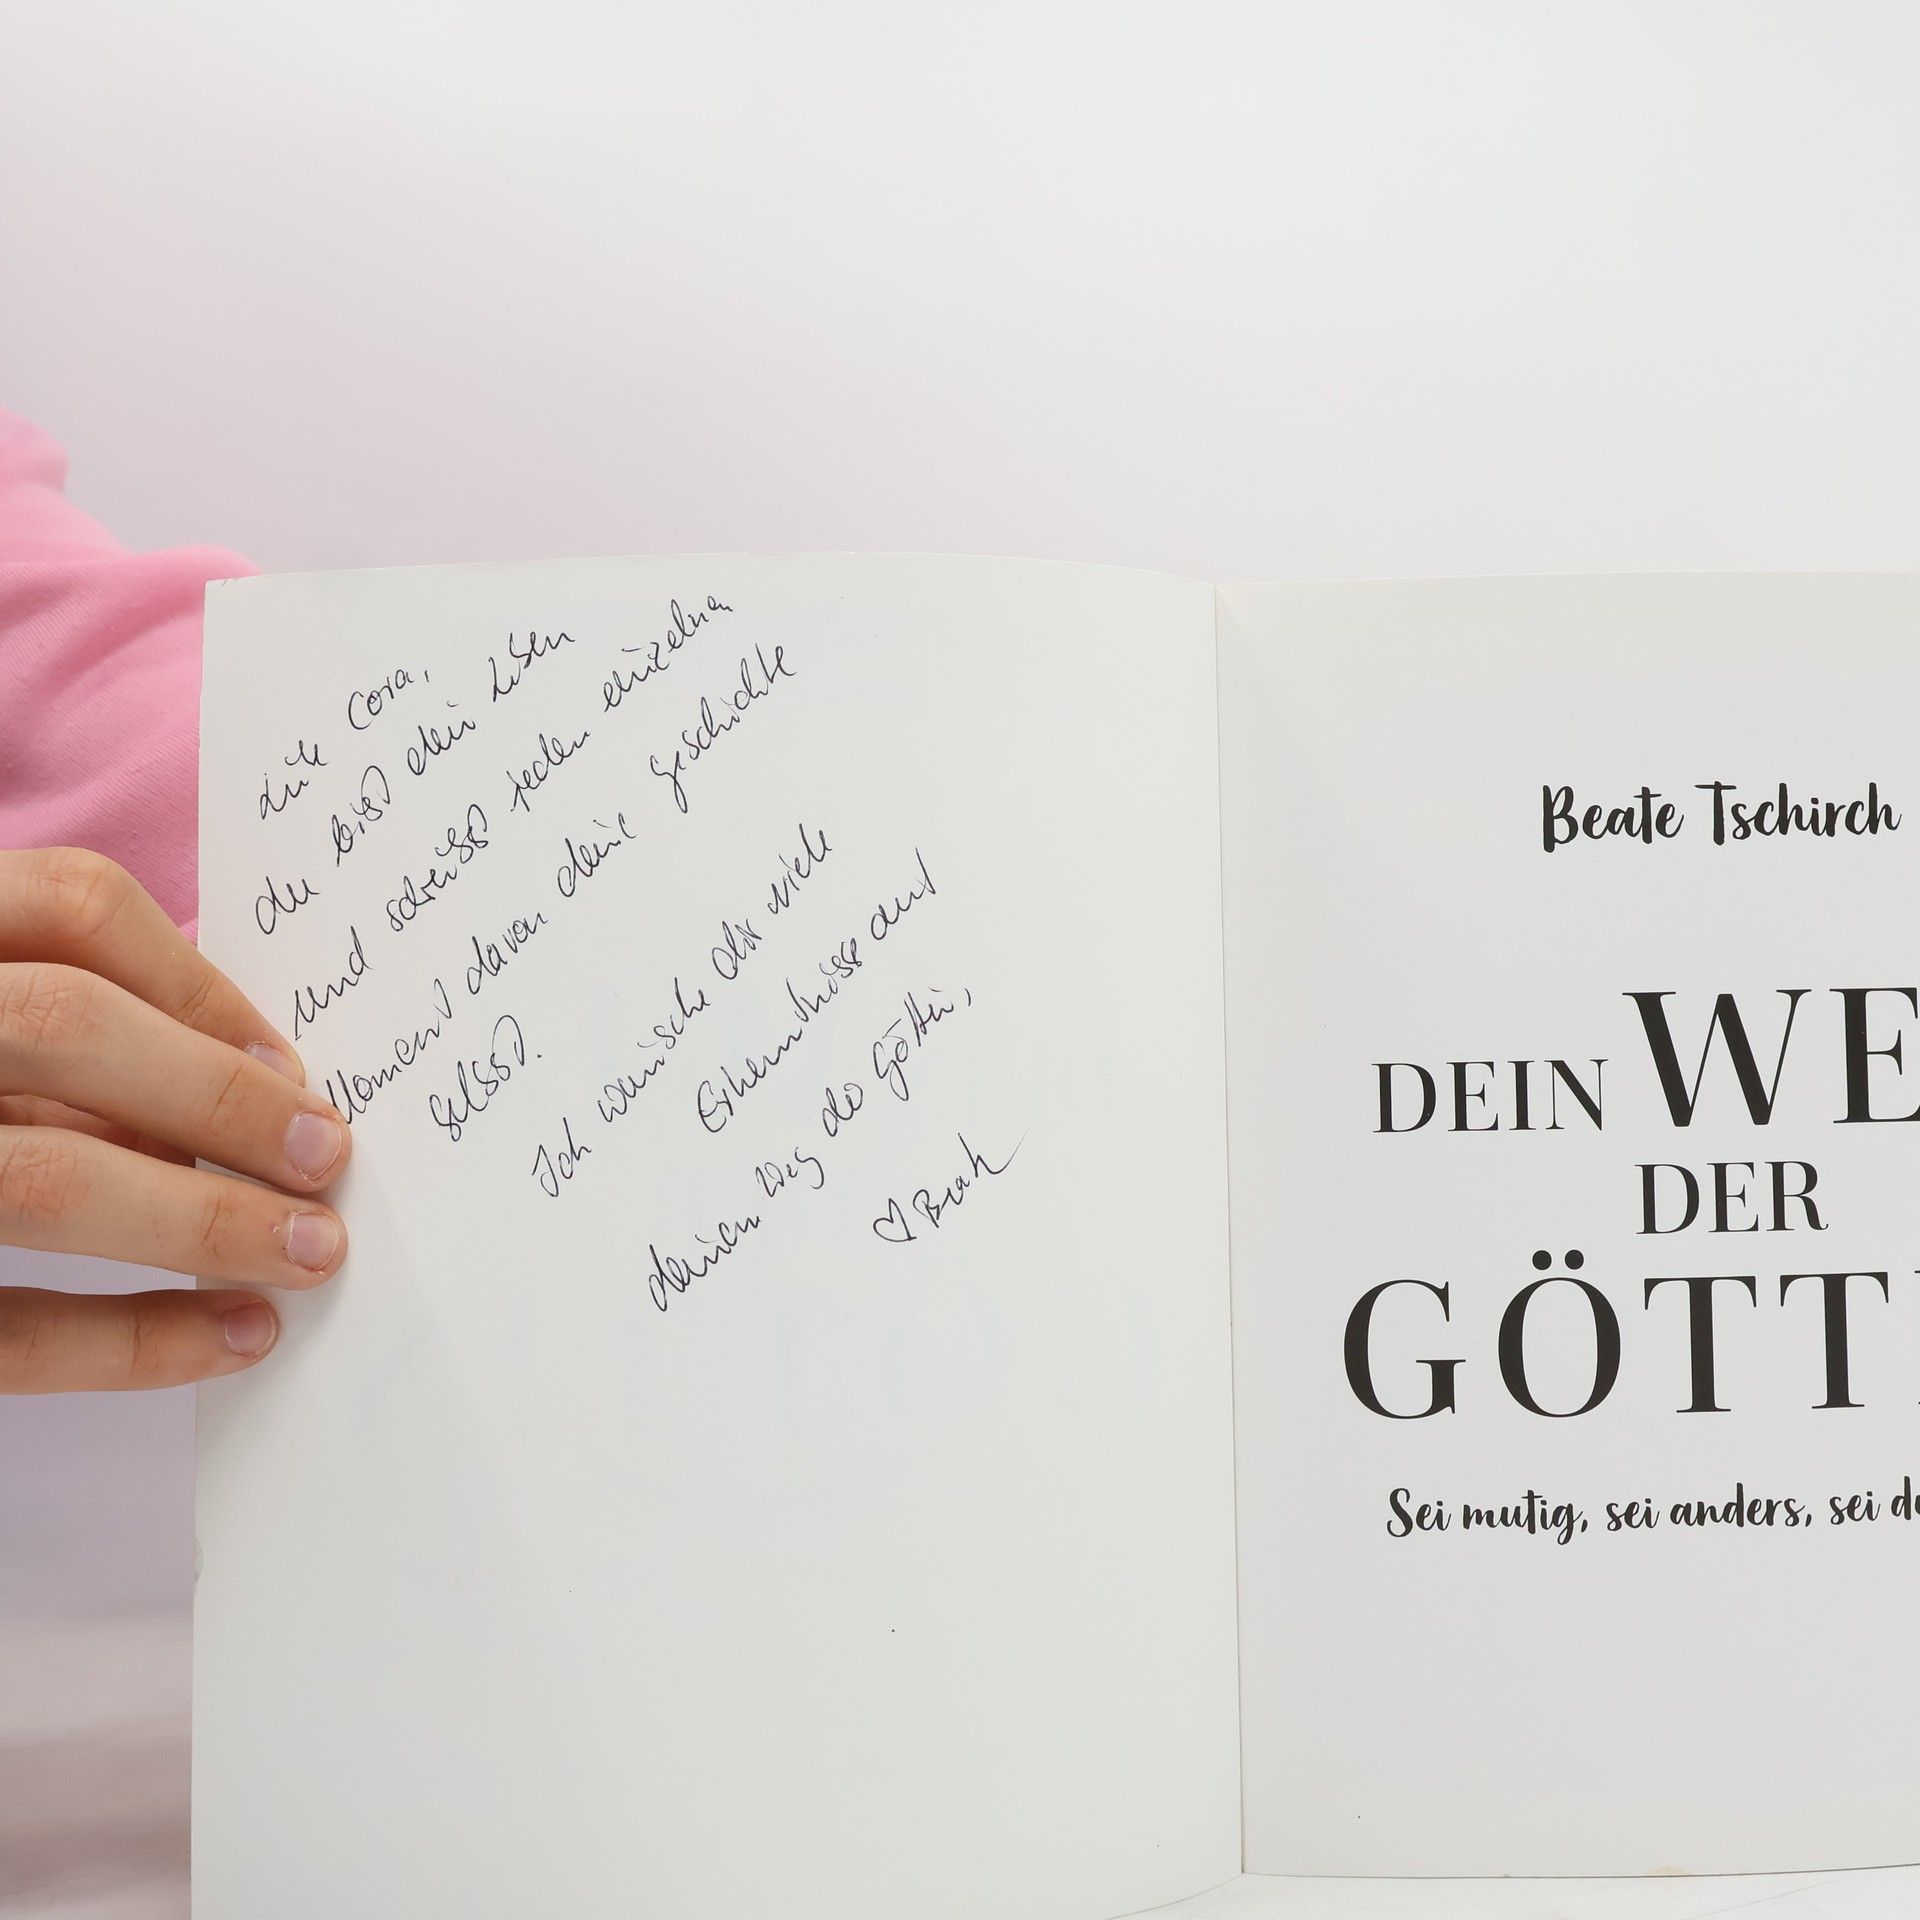 Liebe Cora,
du bist dein Leben
und schreibst jeden einzelnen
Moment davon deine Geschichte
selbst.
Ich wünsche dir viele
Erkenntnisse auf
deinem Weg der Göttin,
♡ Beate
Beate Tschirch
DEIN WE
DER
GÖTTI
Sei mutig, sei anders, sei du